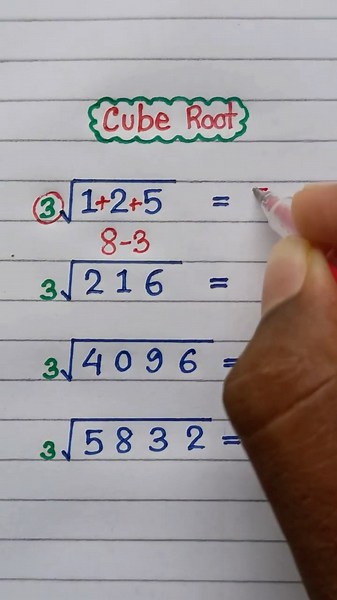 Cube Root
3√1+2+5 =
8-3
3√216 =
3√4096 =
3√5832 =